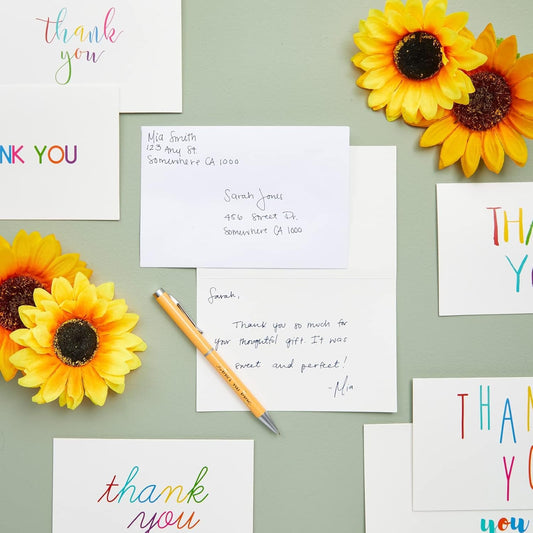 thank
you
NK YOU
Mia Smith
123 Any St.
Somewhere CA 1000
Sarah Jones
456 Street Dr.
Somewhere CA 1000
THAN
YO
Sarah,
Thank you so much for
your thoughtful gift. It was
sweet and perfect!
-Mia
THAN
YO
thank
you
you